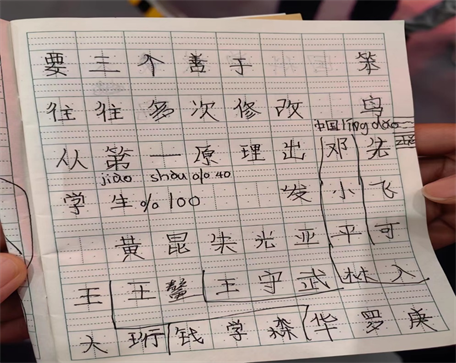 要三个善于 笨
往往多次修改 鸟
中国lǐngdǎo
从第一原理出邓先
jiào shòu%40
学生%100 发小飞
黄昆朱光亚平可
王王 王守武林入
大珩钱学森华罗庚